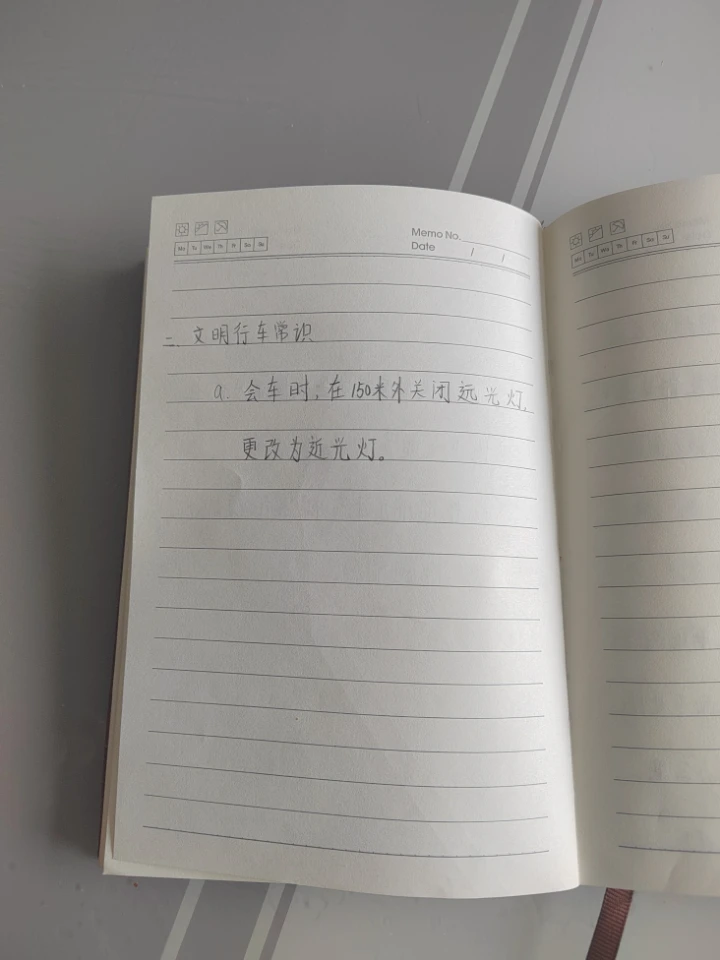 Mo Tu We Th Fr Sa Su
Memo No.
Date / /
二、文明行车常识
a. 会车时,在150米外关闭远光灯,
更改为近光灯。
Mo Tu We Th Fr Sa Su